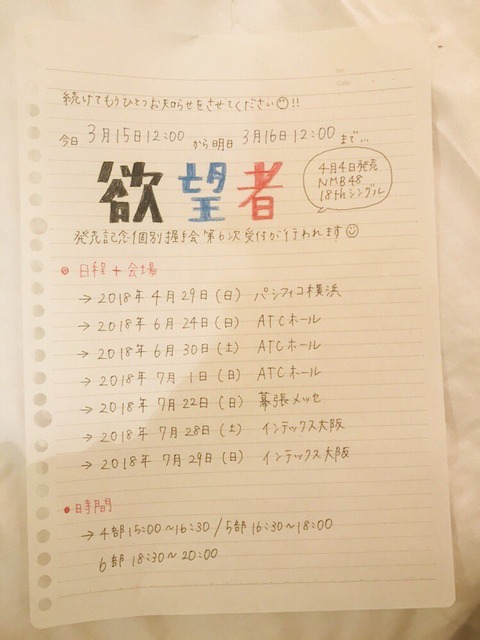 続けてもうひとつお知らせをさせてください!!
今日 3月15日12:00 から明日 3月16日 12:00 まで...
欲望者
4月4日発売
NMB48
18thシングル
発売記念個別握手会 第6次受付が行われます
日程+会場
→2018年 4月29日(日) パシフィコ横浜
→2018年 6月24日(日) ATCホール
→2018年 6月30日(土) ATCホール
→2018年 7月 1日(日) ATCホール
→2018年 7月22日(日) 幕張メッセ
→2018年 7月28日(土) インテックス大阪
→2018年 7月29日(日) インテックス大阪
時間
→4部 15:00~16:30 / 5部 16:30~18:00
6部 18:30~20:00